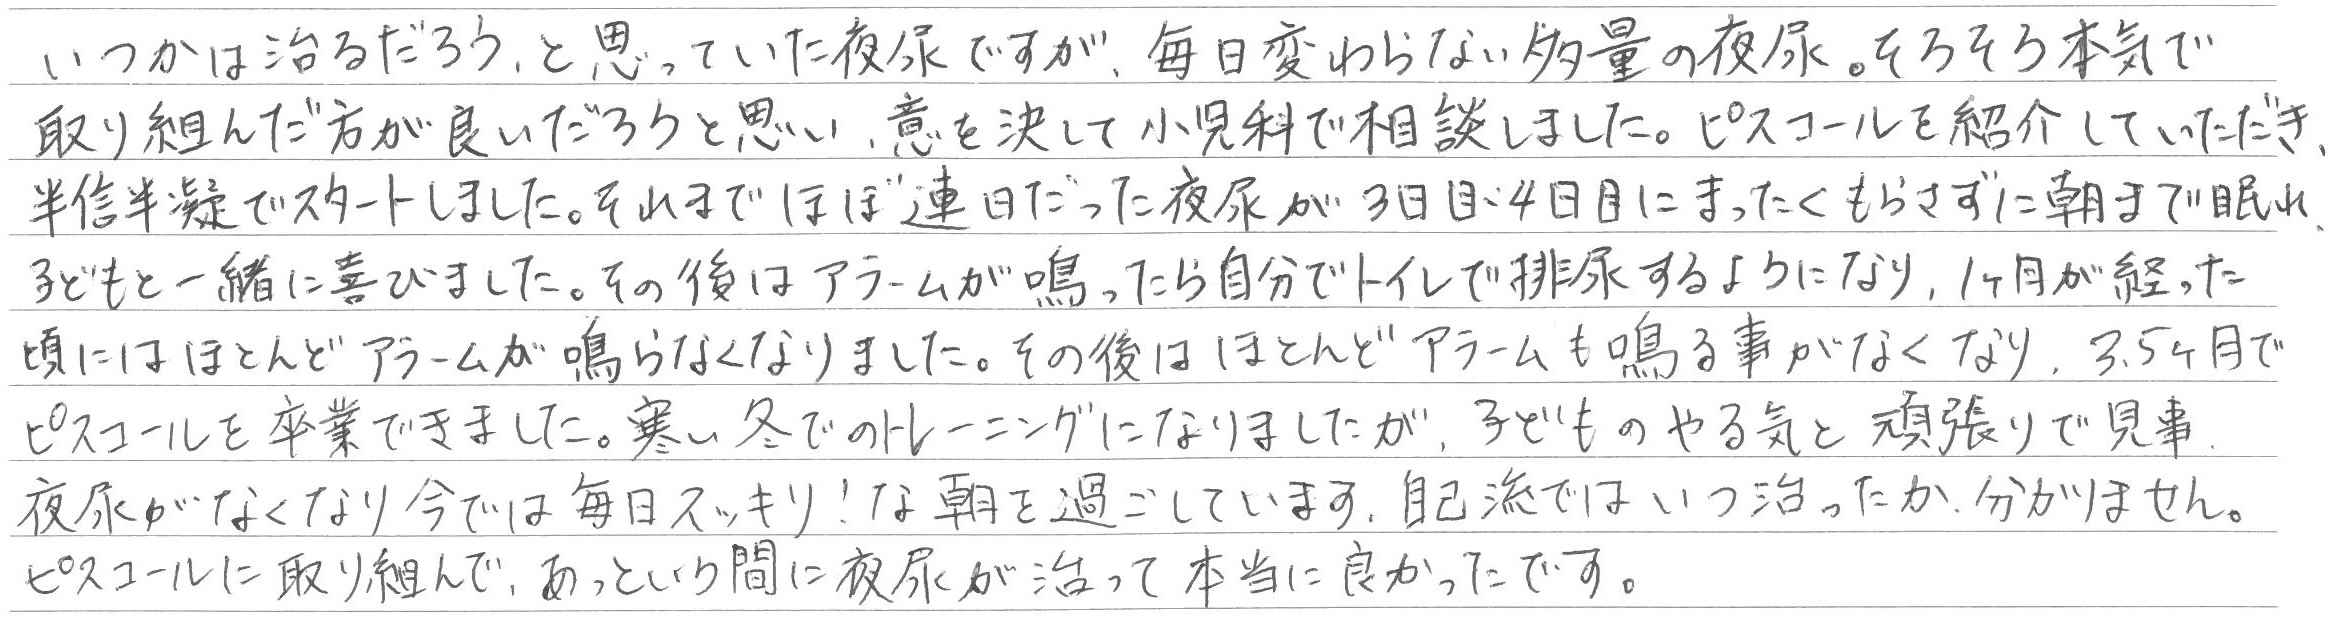 いつかは治るだろう、と思っていた夜尿ですが、毎日変わらない多量の夜尿。そろそろ本気で
取り組んだ方が良いだろうと思い、意を決して小児科で相談しました。ピスコールを紹介していただき、
半信半凝でスタートしました。それまでほぼ連日だった夜尿が3日目・4日目にまったくもらさずに朝まで眠れ、
子どもと一緒に喜びました。その後はアラームが鳴ったら自分でトイレで排尿するようになり、1ヶ月が経った
頃にはほとんどアラームが鳴らなくなりました。その後はほとんどアラームも鳴る事がなくなり、3.5ヶ月で
ピスコールを卒業できました。寒い冬でのトレーニングになりましたが、子どものやる気と頑張りで見事、
夜尿がなくなり今では毎日スッキリ!な朝を過ごしています。自己流ではいつ治ったか、分かりません。
ピスコールに取り組んで、あっという間に夜尿が治って本当に良かったです。